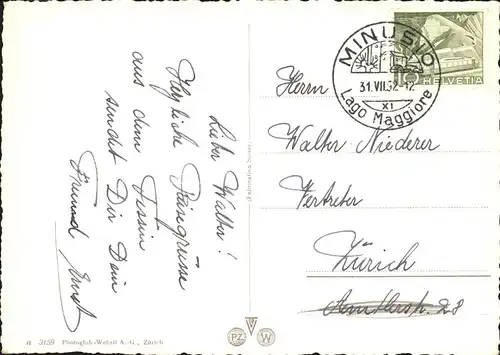 Lieber Walter!
Herzliche Feriengrüsse
aus dem Tessin
sendet Dir Dein
Freund Ernst
MINUSIO
31.VII.52-12
XI
Lago Maggiore
HELVETIA
Herrn
Walter Niederer
Vertreter
Zürich
28
a 3159 Photoglob-Wehrli A.-G., Zürich
PZ W